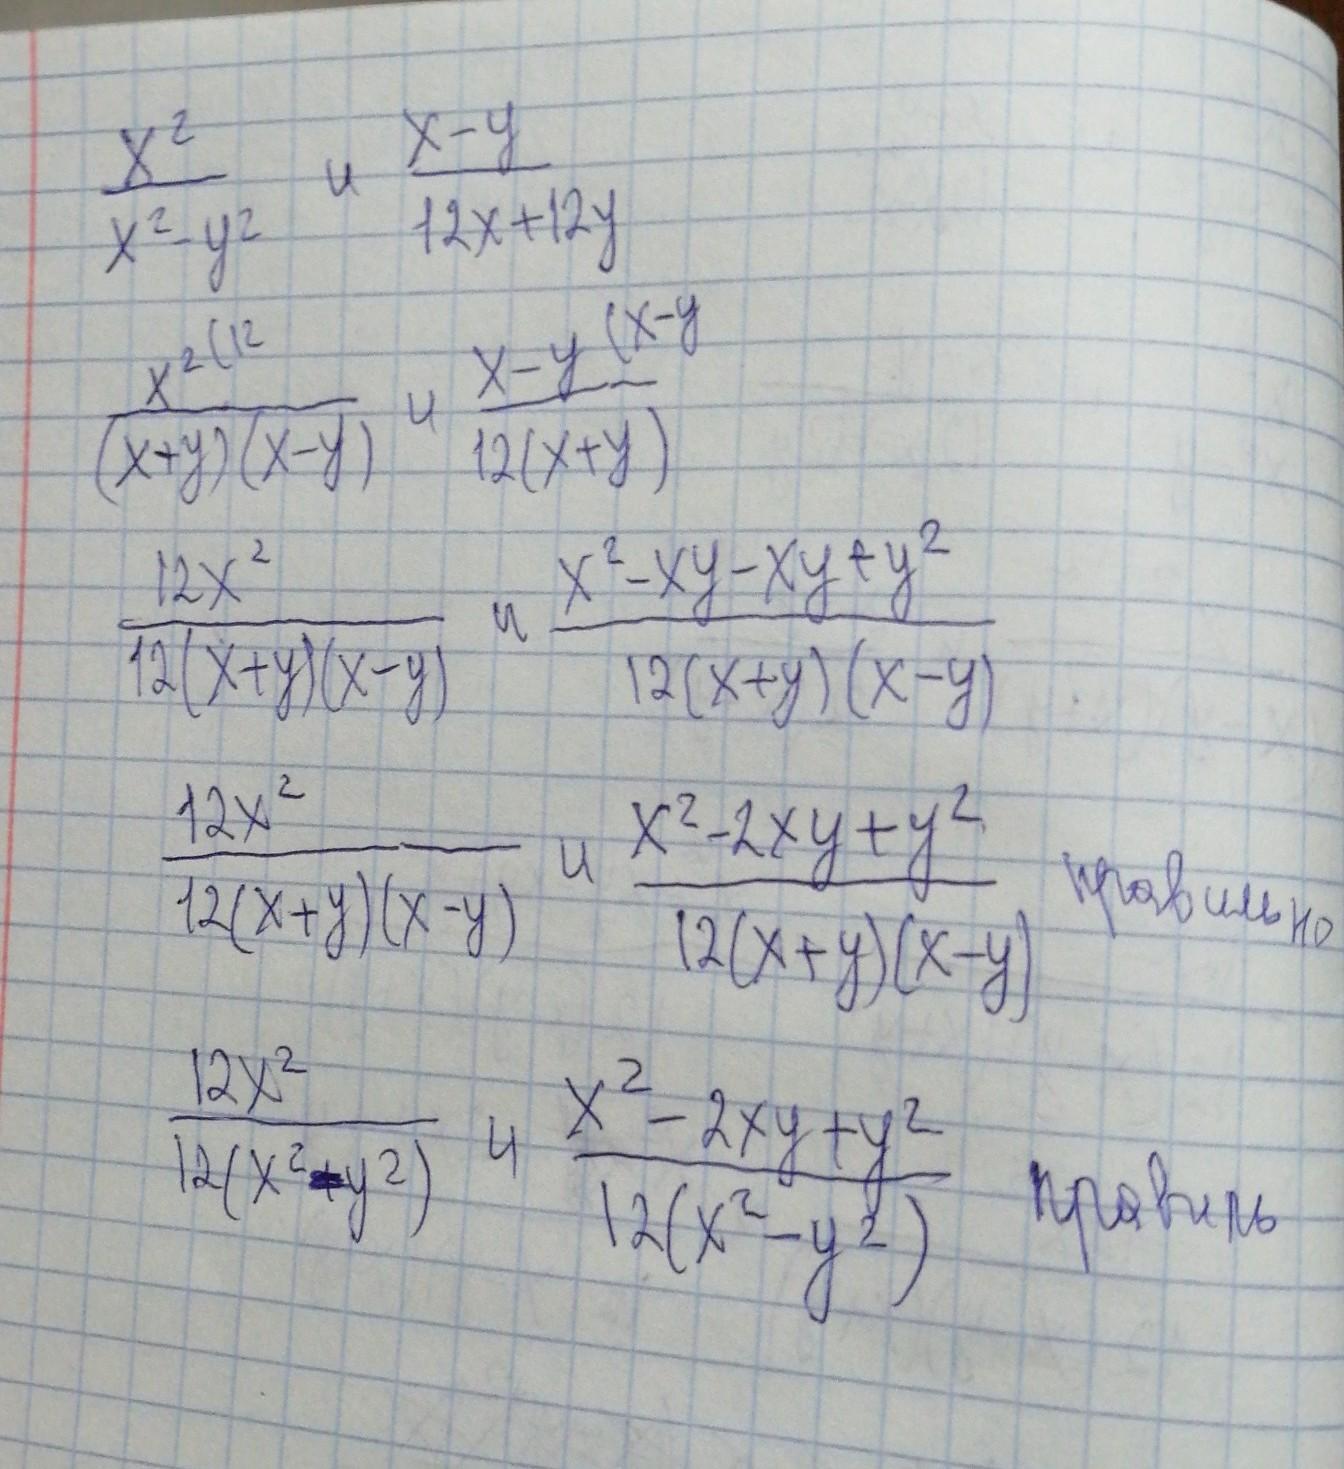 x²/(x²-y²) и (x-y)/(12x+12y)
x²⁽¹²/((x+y)(x-y)) и (x-y ⁽ˣ⁻ʸ)/(12(x+y))
12x²/(12(x+y)(x-y)) и (x²-xy-xy+y²)/(12(x+y)(x-y))
12x²/(12(x+y)(x-y)) и (x²-2xy+y²)/(12(x+y)(x-y)) правильно
12x²/(12(x²-y²)) и (x²-2xy+y²)/(12(x²-y²)) правиль